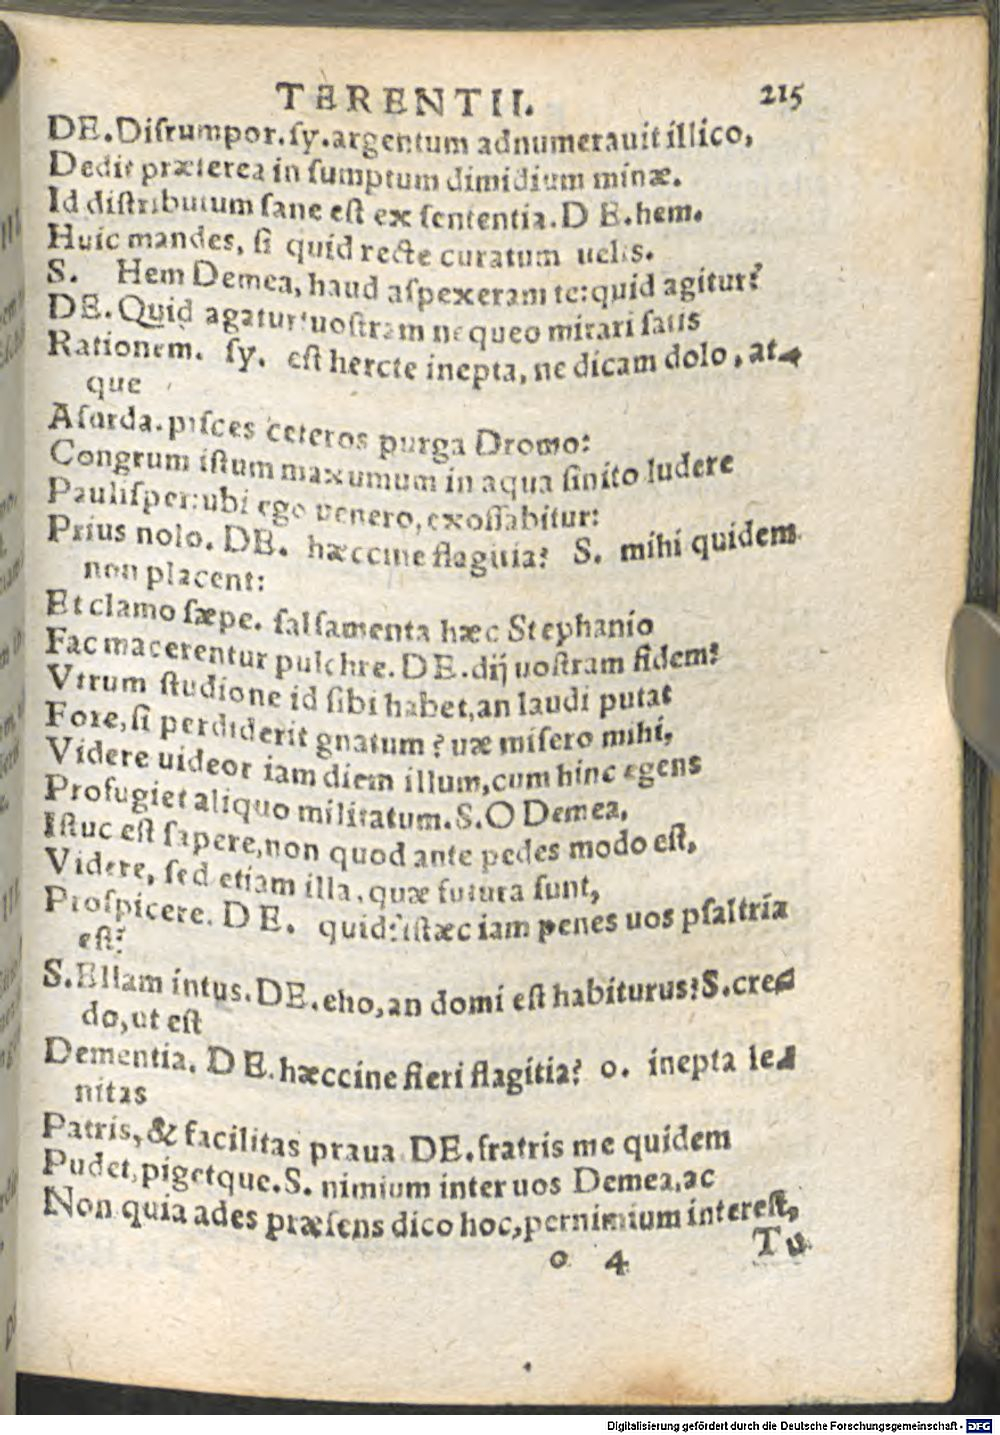 TERENTII. 215
DE. Diſrumpor. ſy. argentum adnumerauit illico,
Dedit præterea in ſumptum dimidium minæ.
Id diſtributum ſane eſt ex ſententia. D E. hem.
Huic mandes, ſi quid recte curatum uelis.
S. Hem Demea, haud aſpexeram te: quid agitur?
DE. Quid agatur? uoſtram nequeo mirari ſatis
Rationem. ſy. eſt hercte inepta, ne dicam dolo, at-
que
Aſurda. piſces ceteros purga Dromo:
Congrum iſtum maxumum in aqua ſinito ludere
Pauliſper: ubi ego venero, exoſſabitur:
Prius nolo. DE. hæccine flagitia? S. mihi quidem
non placent:
Et clamo ſæpe. ſalſamenta hæc Stephanio
Fac macerentur pulchre. DE. dij uoſtram fidem?
Vtrum ſtudione id ſibi habet, an laudi putat
Fore, ſi perdiderit gnatum? uæ miſero mihi,
Videre uideor iam diem illum, cum hinc egens
Profugiet aliquo militatum. S. O Demea,
Iſtuc eſt ſapere, non quod ante pedes modo eſt,
Videre, ſed etiam illa, quæ futura ſunt,
Proſpicere. D E. quid? iſtæc iam penes uos pſaltria
eſt?
S. Ellam intus. DE. eho, an domi eſt habiturus? S. cre-
do, ut eſt
Dementia. D E. hæccine fieri flagitia? o. inepta le-
nitas
Patris, & facilitas praua DE. fratris me quidem
Pudet, pigetque. S. nimium inter uos Demea, ac
Non quia ades præſens dico hoc, pernimium intereſt,
o 4 Tu
Digitalisierung gefördert durch die Deutsche Forschungsgemeinschaft - DFG